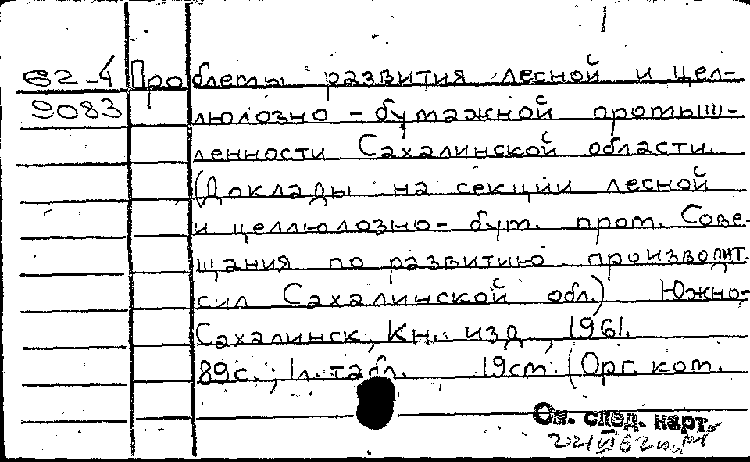 62-4 Проблемы развития лесной и цел-
9083 люлозно-бумажной промыш-
ленности Сахалинской области.
(Доклады на секции лесной
и целлюлозно-бум. пром. Сове-
щания по развитию производит.
сил Сахалинской обл.) Южно-
Сахалинск, Кн. изд., 1961.
89с.; 1л. табл. 19см (Орг. ком.
См. след. карт.